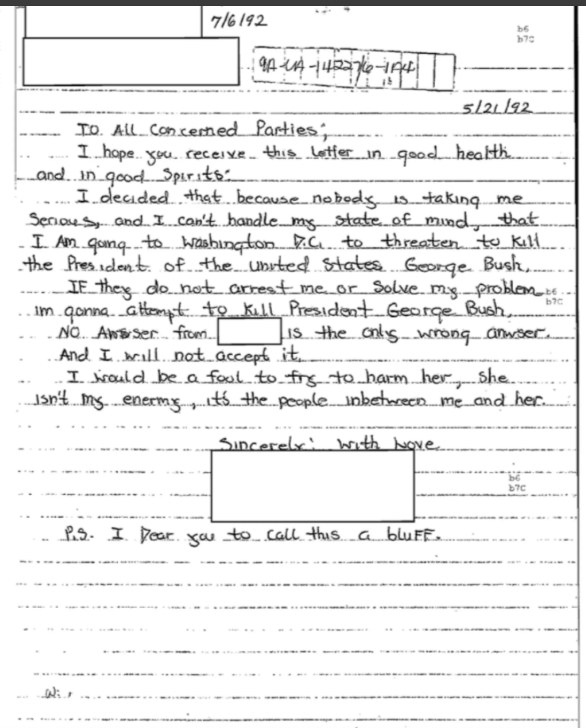 7/6/92
b6
b7C
9A-LA-142276-1A4
5/21/92
To All Concerned Parties;
I hope you receive this letter in good health
and in good spirits.
I decided that because nobody is taking me
Serious, and I can't handle my state of mind, that
I Am going to Washington D.C. to threaten to kill
the President of the United States George Bush,
IF they do not arrest me or Solve my problem
b6
b7C
im gonna attempt to kill President George Bush,
NO Anwser from is the only wrong anwser.
And I will not accept it.
I would be a fool to try to harm her, she
isn't my enermy, it's the people inbetween me and her.
Sincerely: With Love
b6
b7C
P.S. I Dear you to call this a bluFF.